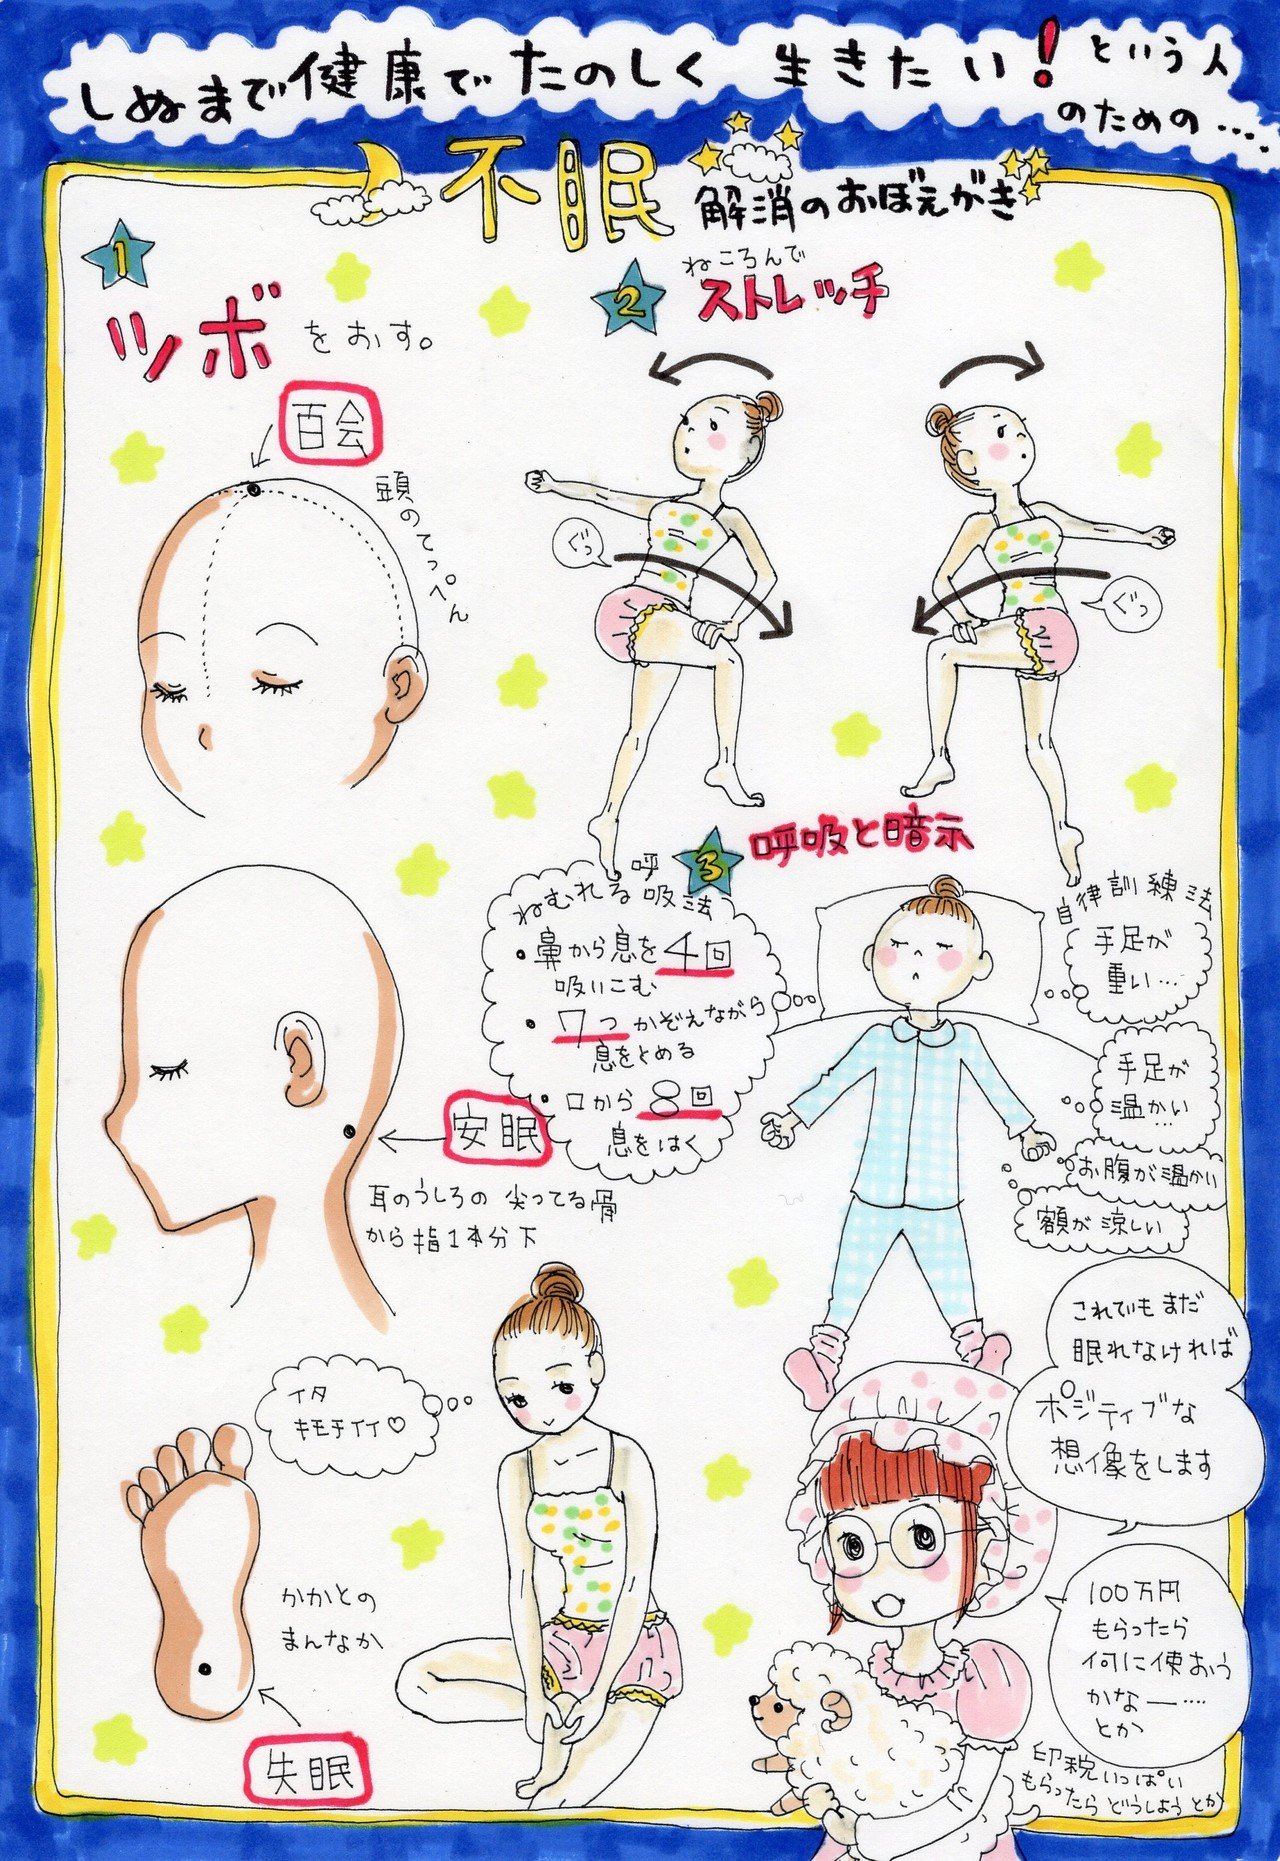 しぬまで健康でたのしく生きたい!という人
のための…
不眠解消のおぼえがき
1
ツボをおす。
百会
頭のてっぺん
安眠
耳のうしろの尖ってる骨
から指1本分下
イタ
キモチイイ♡
かかとの
まんなか
失眠
2
ねころんで
ストレッチ
ぐっ
ぐっ
3
呼吸と暗示
ねむれる呼吸法
・鼻から息を4回
吸いこむ
・7つかぞえながら
息をとめる
・口から8回
息をはく
自律訓練法
手足が
重い…
手足が
温かい…
お腹が温かい
額が涼しい
これでもまだ
眠れなければ
ポジティブな
想像をします
100万円
もらったら
何に使おう
かなー……
とか
印税いっぱい
もらったらどうしようとか